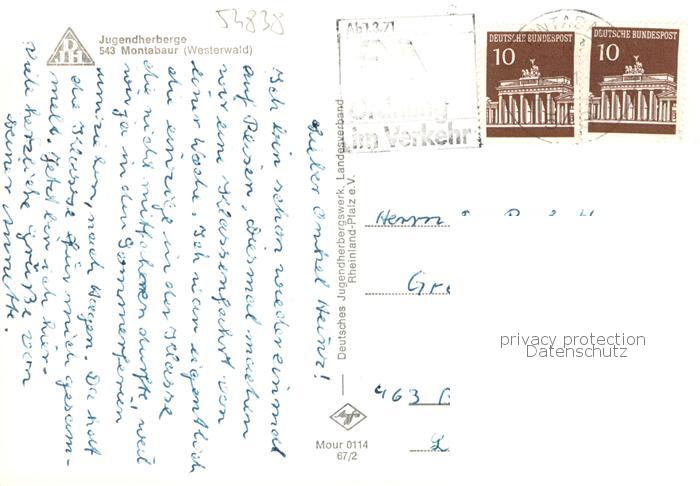 54838
Jugendherberge
543 Montabaur (Westerwald)
DJH
Lieber Onkel Heinz!
Ich bin schon wieder einmal
auf Reisen, diesmal machen
wir eine Klassenfahrt von
einer Woche. Ich war eigentlich
die einzige in der Klasse
die nicht mitfahren durfte, weil
wir ja in den Sommerferien
umziehen, nach Hagen. Da hat
die Klasse für mich gesam-
melt. Jetzt bin ich hier-
Viele herzliche Grüße von
Deiner Annette.
Deutsches Jugendherbergswerk, Landesverband
Rheinland-Pfalz e.V.
Mour 0114
67/2
Ab 1.3.71
Ordnung
im Verkehr
DEUTSCHE BUNDESPOST
10
DEUTSCHE BUNDESPOST
10
Herrn
463
privacy protection
Datenschutz